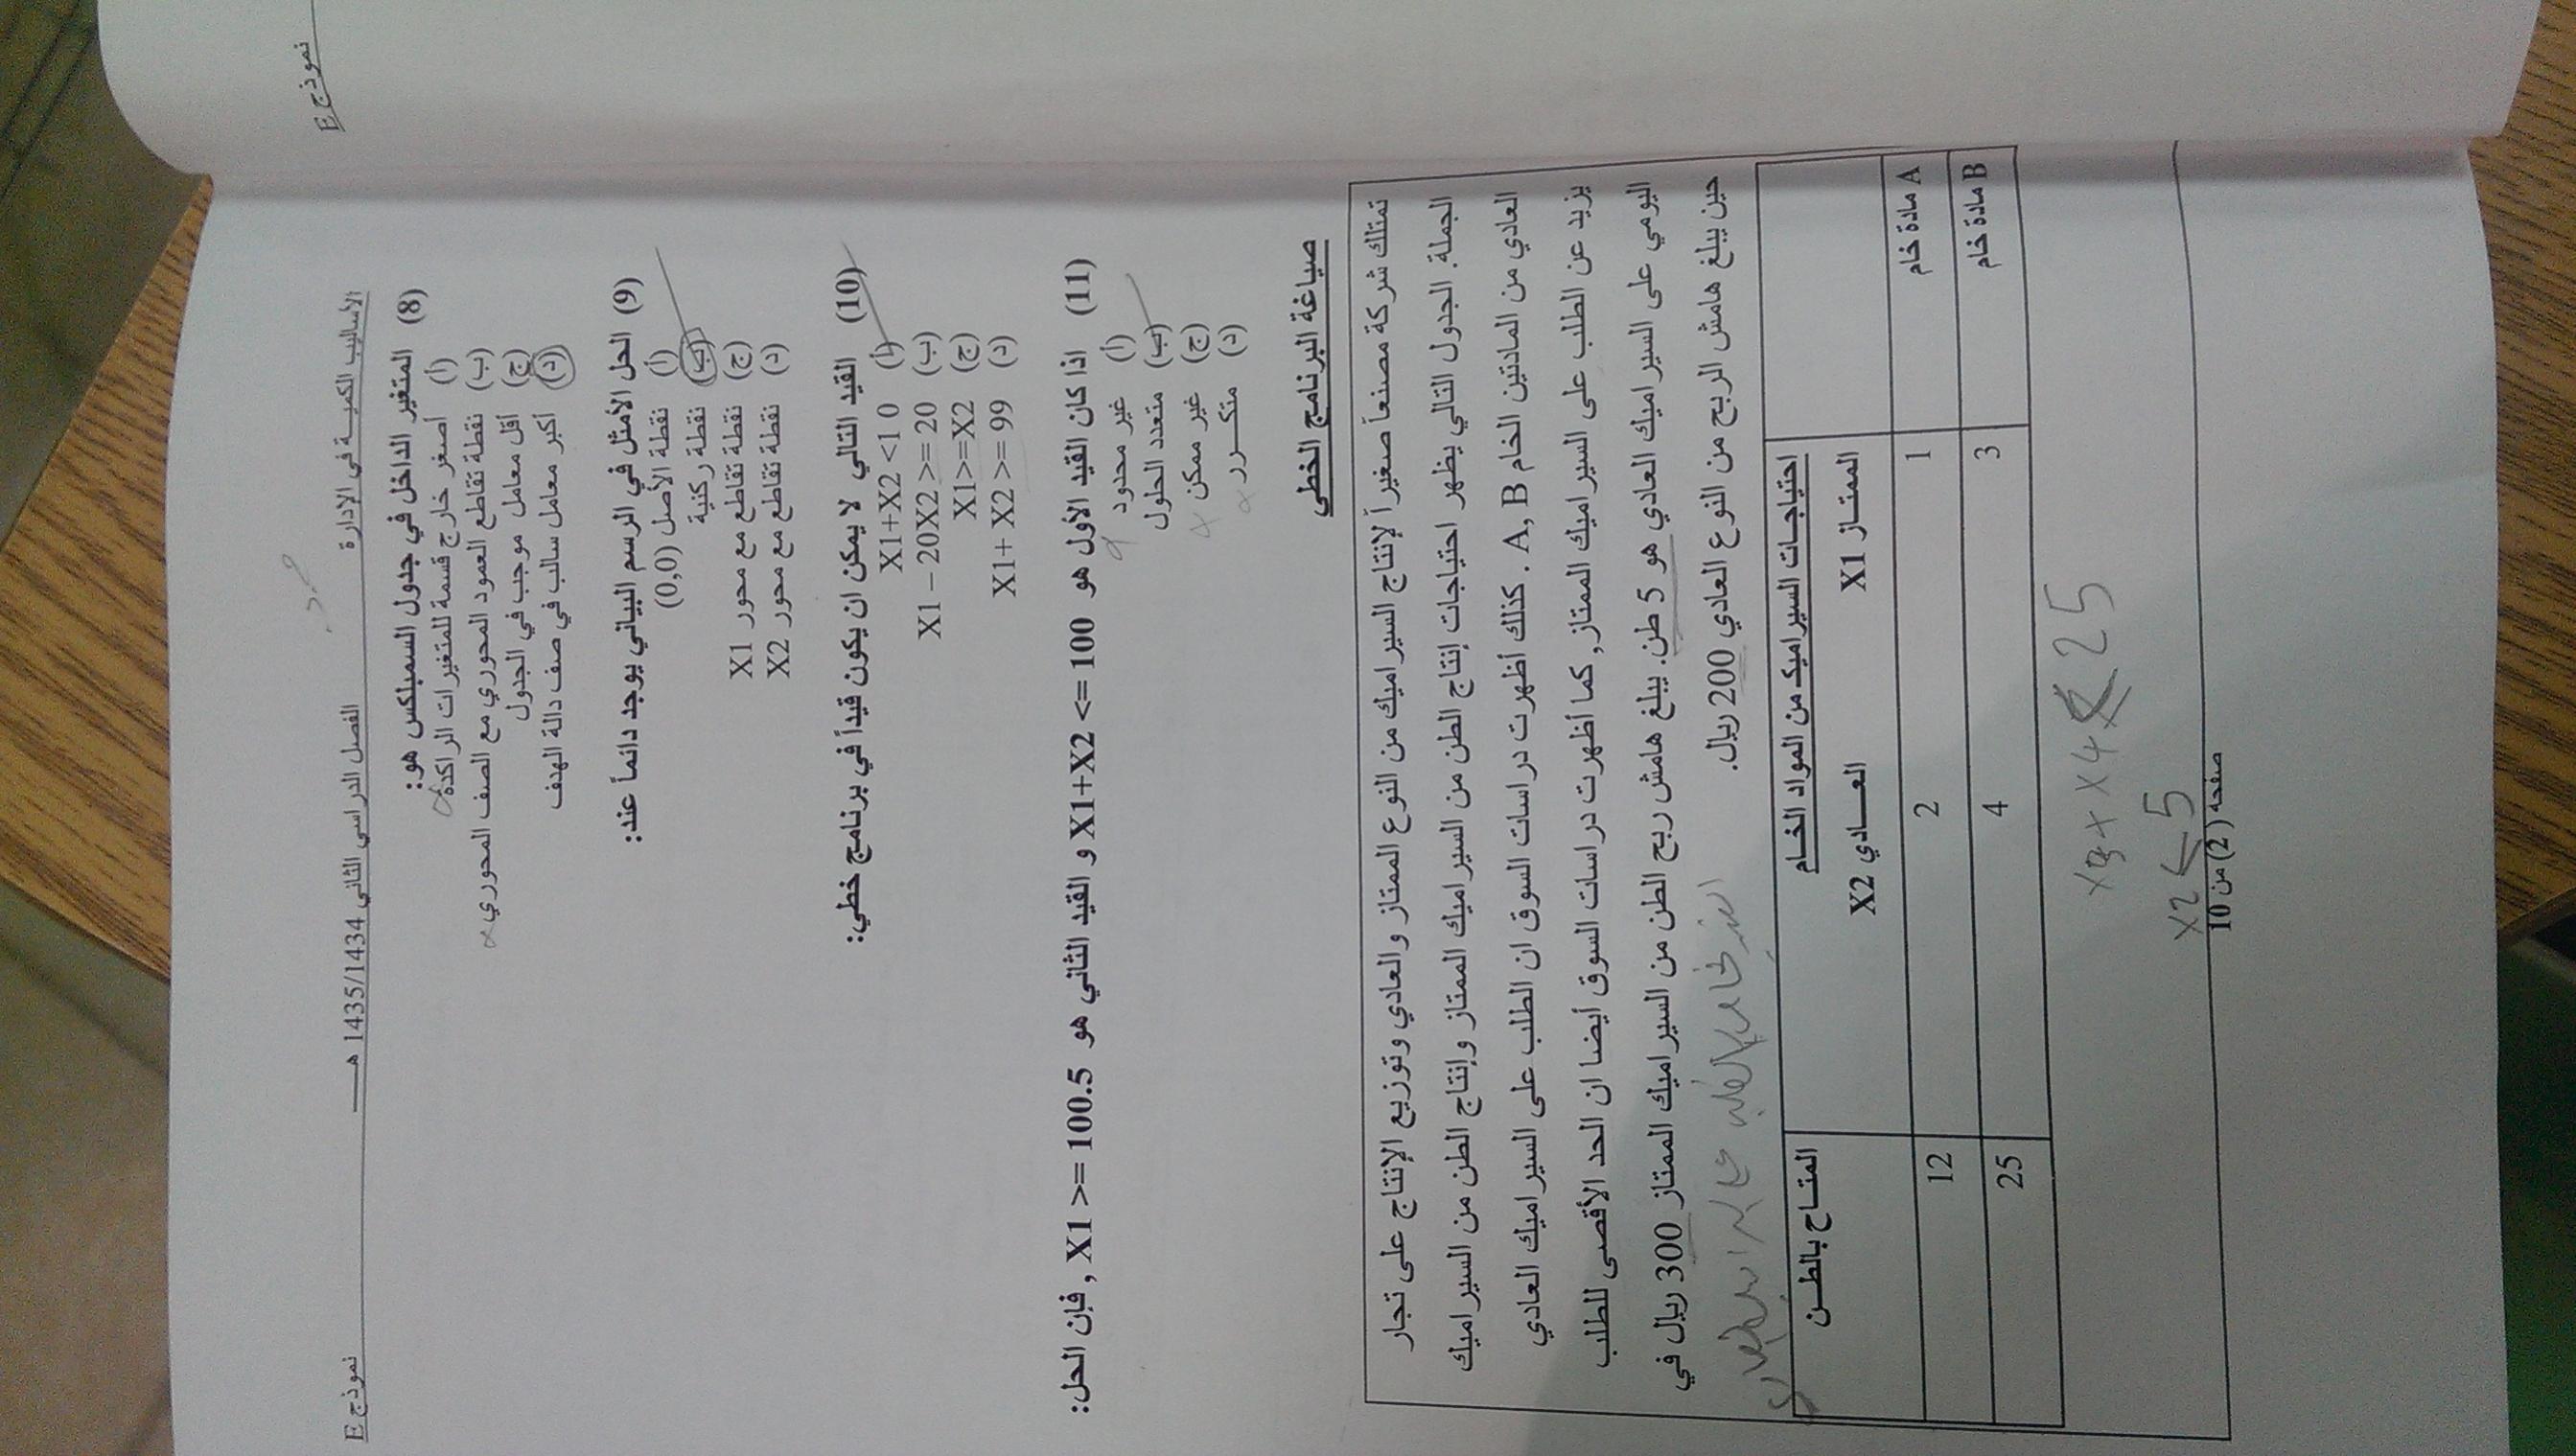 الأساليب الكميـــة في الإدارة الفصل الدراسي الثاني 1435/1434 هـــ نموذج E
(8) المتغير الداخل في جدول السمبلكس هو:
(أ) أصغر خارج قسمة للمتغيرات الراكدة
(ب) نقطة تقاطع العمود المحوري مع الصف المحوري
(ج) أقل معامل موجب في الجدول
(د) أكبر معامل سالب في صف دالة الهدف
(9) الحل الأمثل في الرسم البياني يوجد دائماً عند:
(أ) نقطة الأصل (0,0)
(ب) نقطة ركنية
(ج) نقطة تقاطع مع محور X1
(د) نقطة تقاطع مع محور X2
(10) القيد التالي لا يمكن ان يكون قيداً في برنامج خطي:
(أ) X1+X2 <1 0
(ب) X1 – 20X2 >= 20
(ج) X1>=X2
(د) X1+ X2 >= 99
(11) اذا كان القيد الأول هو X1+X2 <= 100 و القيد الثاني هو X1 >= 100.5 , فإن الحل:
(أ) غير محدود
(ب) متعدد الحلول
(ج) غير ممكن
(د) متكـــرر
صياغة البرنامج الخطي
تمتلك شركة مصنعاً صغيراً لإنتاج السيراميك من النوع الممتاز والعادي وتوزيع الإنتاج على تجار
الجملة. الجدول التالي يظهر احتياجات إنتاج الطن من السيراميك الممتاز وإنتاج الطن من السيراميك
العادي من المادتين الخام A, B . كذلك أظهرت دراسات السوق ان الطلب على السيراميك العادي
يزيد عن الطلب على السيراميك الممتاز, كما أظهرت دراسات السوق أيضا ان الحد الأقصى للطلب
اليومي على السيراميك العادي هو 5 طن. يبلغ هامش ربح الطن من السيراميك الممتاز 300 ريال في
حين يبلغ هامش الربح من النوع العادي 200 ريال.
احتياجـات السيراميك من المواد الخـام المتـاح بالطـن
الممتـاز X1 العـــادي X2
مادة خام A 1 2 12
مادة خام B 3 4 25
25
X2 5
صفحة (2) من 10
نموذج E